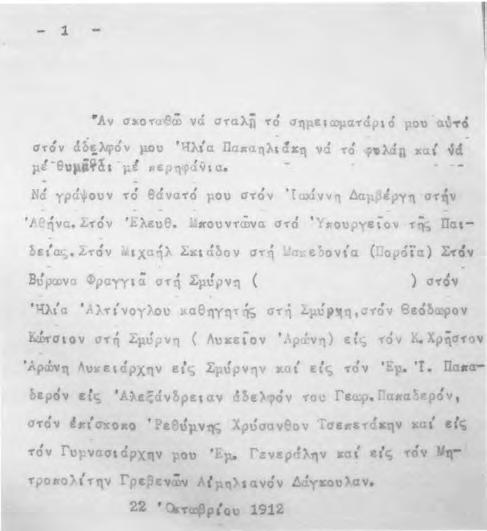 - 1 -
Ἄν σκοτωθῶ νά σταλῇ τό σημειωματάριό μου αὐτό
στόν ἀδελφόν μου Ἠλία Παπαηλιάκη νά τό φυλάῃ καί νά
μέ θυμᾶται μέ περηφάνια.
Νά γράψουν τό θάνατό μου στόν Ἰωάννη Δαμβέργη στήν
Ἀθήνα. Στόν Ἐλευθ. Μπουντώνα στό Ὑπουργεῖον τῆς Παι-
δείας. Στόν Μιχαήλ Σκιάδον στή Μακεδονία (Πορόϊα) Στόν
Βύρωνα Φραγγιᾶ στή Σμύρνη ( ) στόν
Ἠλία Ἀλτίνογλου καθηγητής στή Σμύρνη, στόν Θεόδωρον
Κώτσιον στή Σμύρνη ( Λυκεῖον Ἀρώνη) εἰς τόν Κ. Χρῆστον
Ἀρώνη Λυκειάρχην εἰς Σμύρνην καί εἰς τόν Ἐμ. Ἰ. Παπα-
δερόν εἰς Ἀλεξάνδρειαν ἀδελφόν του Γεωρ. Παπαδερόν,
στόν ἐπίσκοπο Ῥεθύμνης Χρύσανθον Τσεπετάκην καί εἰς
τόν Γυμνασιάρχην μου Ἐμ. Γενεράλην καί εἰς τόν Μη-
τροπολίτην Γρεβενῶν Αἰμηλιανόν Δάγκουλαν.
22 Ὀκτωβρίου 1912